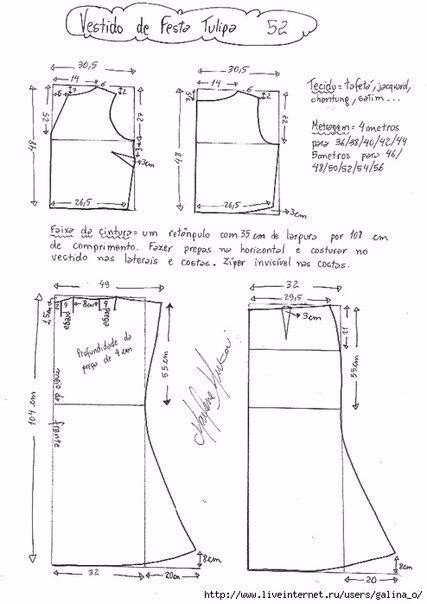 Vestido de Festa Tulipa 52
30,5
14
6
2
25
27
48
3
3cm
26,5
30,5
14
6
2
27
48
26,5
3cm
Tecido= tafetá, jacquard,
shantung, satim...
Metragem= 4 metros
para 36/38/40/42/44
5 metros para 46/
48/50/52/54/56
Faixa da cintura= um retângulo com 35 cm de largura por 108 cm
de comprimento. Fazer pregas na horizontal e costurar no
vestido nas laterais e costas. Zíper invisível nas costas.
49
1,5
4
8cm
4
prega
prega
Profundidade da
prega de 4 cm
55 cm
meio da
frente
104 cm
32
20cm
8cm
32
29,5
3cm
21
55cm
8cm
20
http://www.liveinternet.ru/users/galina_o/